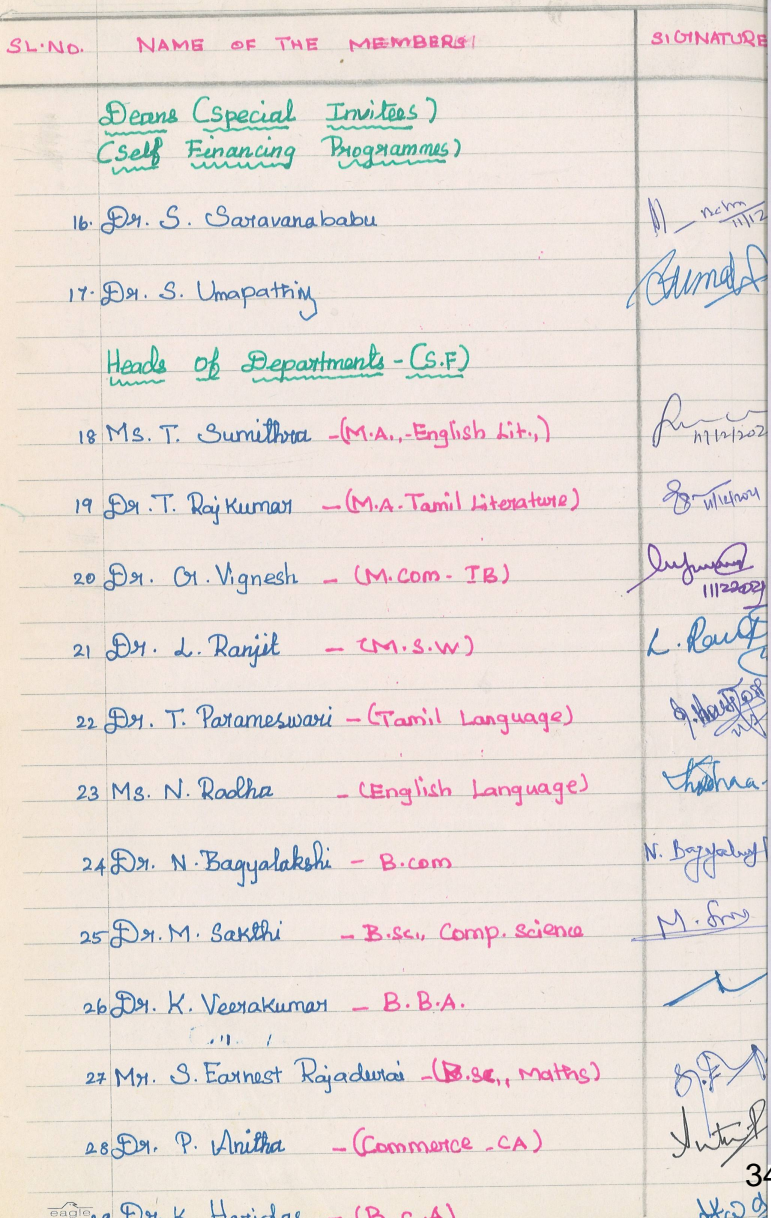 SL.NO. NAME OF THE MEMBERS SIGNATURE
Deans (Special Invitees)
(Self Financing Programmes)
16. Dr. S. Saravanababu 11/12
17. Dr. S. Umapathiy
Heads of Departments - (S.F)
18 Ms. T. Sumithra - (M.A., - English Lit.,)
19 Dr. T. Rajkumar - (M.A. Tamil Literature)
20 Dr. G. Vignesh - (M.Com - IB)
21 Dr. L. Ranjit - (M.S.W)
22 Dr. T. Parameswari - (Tamil Language)
23 Ms. N. Radha - (English Language)
24 Dr. N. Bagyalakshi - B.com
25 Dr. M. Sakthi - B.sc., Comp. Science
26 Dr. K. Veerakumar - B.B.A.
27 Mr. S. Earnest Rajadurai - (B.sc., Maths)
28 Dr. P. Anitha - (Commerce - CA)
34
eagle Dr. K. Haridas - (B.C.A)